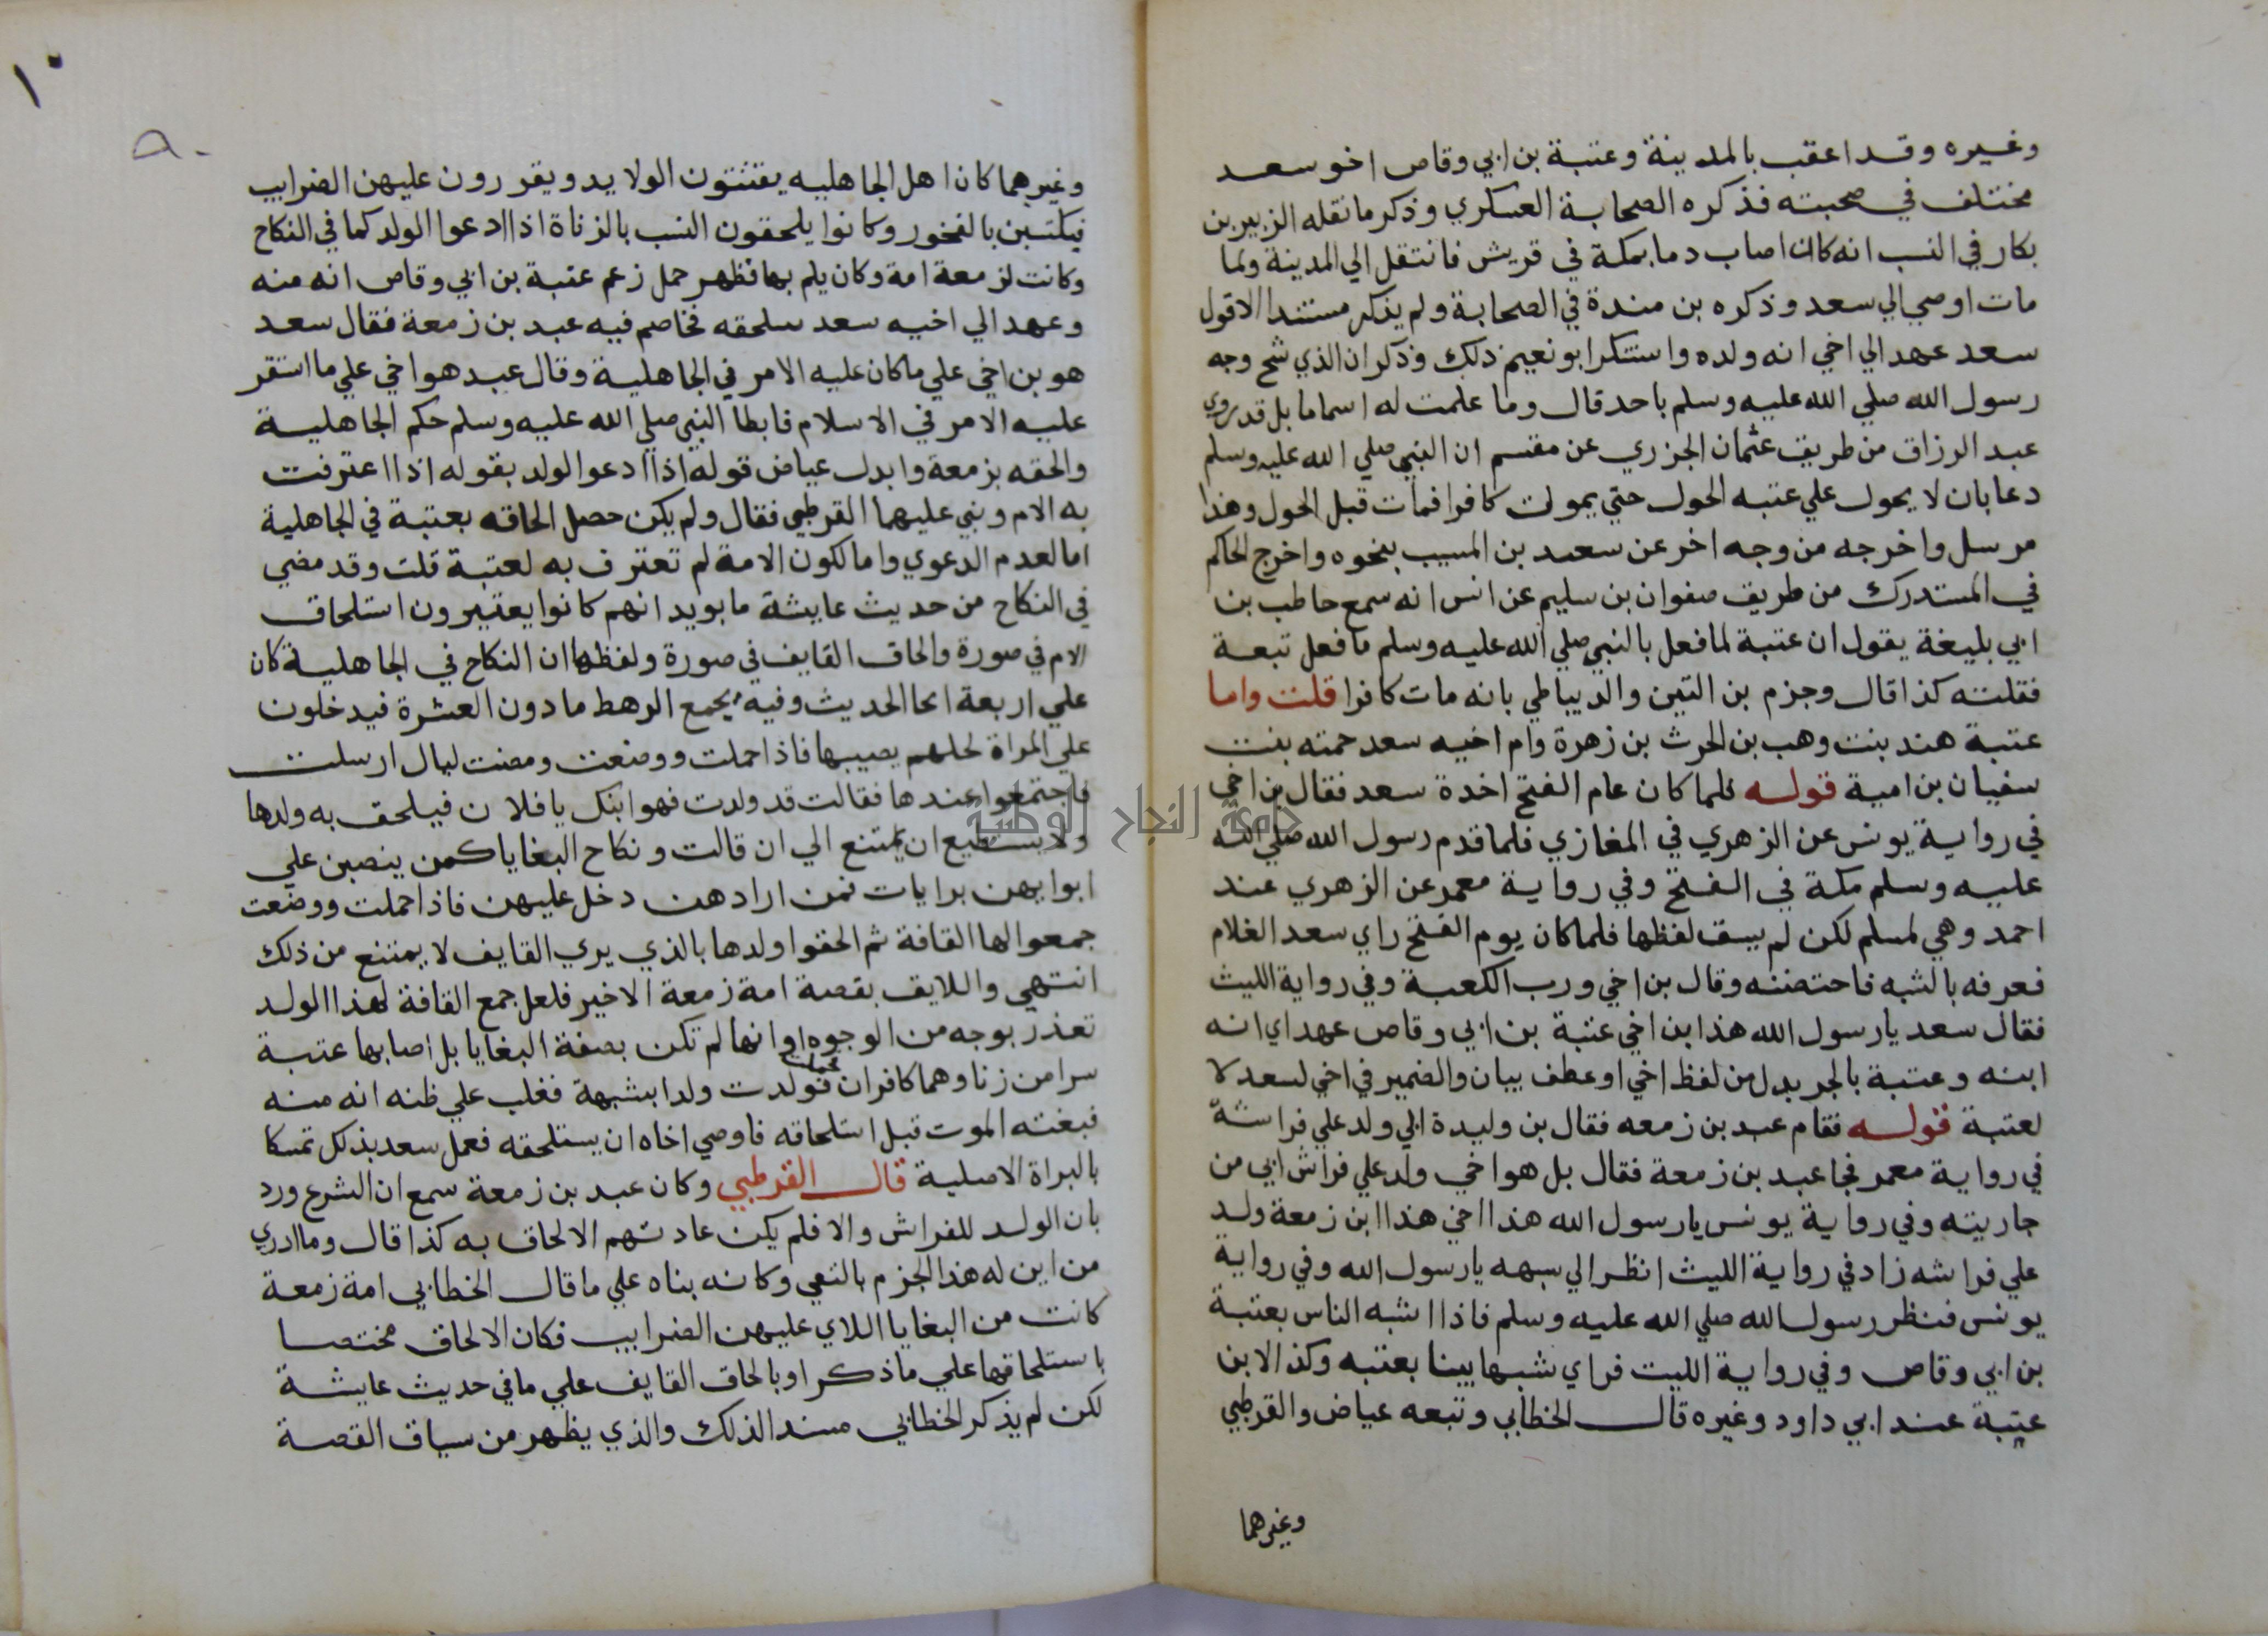 وغيره وقد اعقب بالمدينة وعتبة بن ابي وقاص اخو سعد
مختلف في صحبته فذكره الصحابة العسكري وذكر ما نقله الزبير بن
بكار في النسب انه كان اصاب دما بمكة في قريش فانتقل الي المدينة ولما
مات اوصي الي سعد وذكره بن مندة في الصحابة ولم يذكر مستندا الا قول
سعد عهد الي اخي انه ولده واستنكر ابو نعيم ذلك وذكر ان الذي شج وجه
رسول الله صلي الله عليه وسلم باحد قال وما علمت له اسماما بل قد روي
عبد الرزاق من طريق عثمان الجزري عن مقسم ان النبي صلي الله عليه وسلم
دعا بان لا يحول علي عتبه الحول حتي يموت كافرا فمات قبل الحول وهذا
مرسل واخرجه من وجه اخر عن سعيد بن المسيب بنحوه واخرج الحاكم
في المستدرك من طريق صفوان بن سليم عن انس انه سمع حاطب بن
ابي بليغة يقول ان عتبة لما فعل بالنبي صلي الله عليه وسلم ما فعل تبعة
فقلته كذا قال وجزم بن التين والديباطي بانه مات كافرا قلت واما
عتبة هند بنت وهب بن الحرث بن زهرة وام اخيه سعد حمته بنت
سفيان بن امية قوله فلما كان عام الفتح اخدة سعد فقال بن اخي
في رواية يونس عن الزهري في المغازي فلما قدم رسول الله صلي الله
عليه وسلم مكة في الفتح وفي رواية معمر عن الزهري عند
احمد وهي لمسلم لكن لم يسق لفظها فلما كان يوم الفتح راي سعد الغلام
فعرفه بالشبه فاحتضنه وقال بن اخي ورب الكعبة وفي رواية الليث
فقال سعد يا رسول الله هذا ابن اخي عتبة بن ابي وقاص عهد اي انه
ابنه وعتبة بالجر بدل من لفظ اخي او عطف بيان والضمير في اخي لسعد لا
لعتبة قوله فقام عبد بن زمعه فقال بن وليدة ابي ولد علي فراشة
في رواية معمر فجا عبد بن زمعة فقال بل هو اخي ولد علي فراش ابي من
جاريته وفي رواية يونس يا رسول الله هذا اخي هذا ابن زمعة ولد
علي فراشه زاد في رواية الليث انظر الي سبهه يا رسول الله وفي رواية
يونس فنظر رسول الله صلي الله عليه وسلم فاذا اشبه الناس بعتبة
بن ابي وقاص وفي رواية الليث فراي شبها بينا بعتبه وكذا لابن
عيتبة عند ابي داود وغيره قال الخطابي وتبعه عياض والقرطبي
وغيرهما
١٠
وغيرهما كان اهل الجاهليه يقتنون الولايد ويقررون عليهن الضرايب
فيكتسبن بالفخور وكانوا يلحقون النسب بالزناة اذا ادعوا الولد كما في النكاح
وكانت لزمعة امة وكان يلم بها فظهر حمل زعم عتبة بن ابي وقاص انه منه
وعهد الي اخيه سعد سلحقه فخاصم فيه عبد بن زمعة فقال سعد
هو بن اخي علي ما كان عليه الامر في الجاهلية وقال عبد هو اخي علي ما استقر
عليه الامر في الاسلام فابطا النبي صلي الله عليه وسلم حكم الجاهلية
والحقه بزمعة وابدل عياض قوله اذا ادعوا الولد بقوله اذا اعترفت
به الام وبني عليهما القرطبي فقال ولم يكن حصل الحاقه بعتبة في الجاهلية
اما لعدم الدعوي واما لكون الامة لم تعترف به لعتبة قلت وقد مضي
في النكاح من حديث عايشة ما بويد انهم كانوا يعتبرون استلحاق
الام في صورة والحاق القايف في صورة ولفظها ان النكاح في الجاهلية كان
علي اربعة انحا الحديث وفيه يجمع الرهط مادون العشرة فيدخلون
علي المراة لحلهم يصيبها فاذا حملت ووضعت ومضت ليال ارسلت
فاجتمعوا عندها فقالت قد ولدت فهو ابنك يا فلان فيلحق به ولدها
ولا يستطيع ان يمتنع الي ان قالت ونكاح البغايا كمن ينصبن علي
ابوابهن برايات فمن ارادهن دخل عليهن فاذا حملت ووضعت
جمعوا لها القافة ثم الحقوا ولدها بالذي يري القايف لا يمتنع من ذلك
انتهي واللايق بقصة امة زمعة الاخير فلعل جمع القافة لهذا الولد
تعذر بوجه من الوجوه او انها لم تكن بصفة البغايا بل اصابها عتبة
سرا من زنا وهما كافران فولدت ولدا بشبهة فغلب علي ظنه انه منه
فبغته الموت قبل استلحاقه فاوصي اخاه ان يستلحقه فعمل سعد بذلك تمسكا
بالبراة الاصلية قال القرطبي وكان عبد بن زمعة سمع ان الشرع ورد
بان الولد للفراش والا فلم يكن عادتهم الالحاق به كذا قال وما ادري
من اين له هذا الجزم بالنفي وكانه بناه علي ما قال الخطابي امة زمعة
كانت من البغايا اللاي عليهن الضرايب فكان الالحاق مختصا
باستلحاقها علي ما ذكر او بالحاق القايف علي ما في حديث عايشة
لكن لم يذكر الخطابي مسندا لذلك والذي يظهر من سياق القصة
جامعة النجاح الوطنية